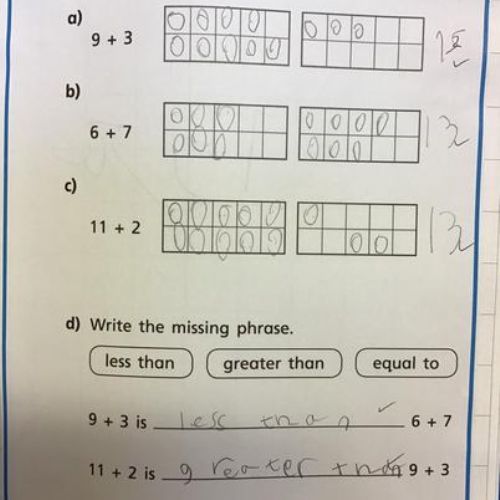 a)
9 + 3
12
b)
6 + 7
13
c)
11 + 2
13
d) Write the missing phrase.
less than greater than equal to
9 + 3 is less than 6 + 7
11 + 2 is greater than 9 + 3